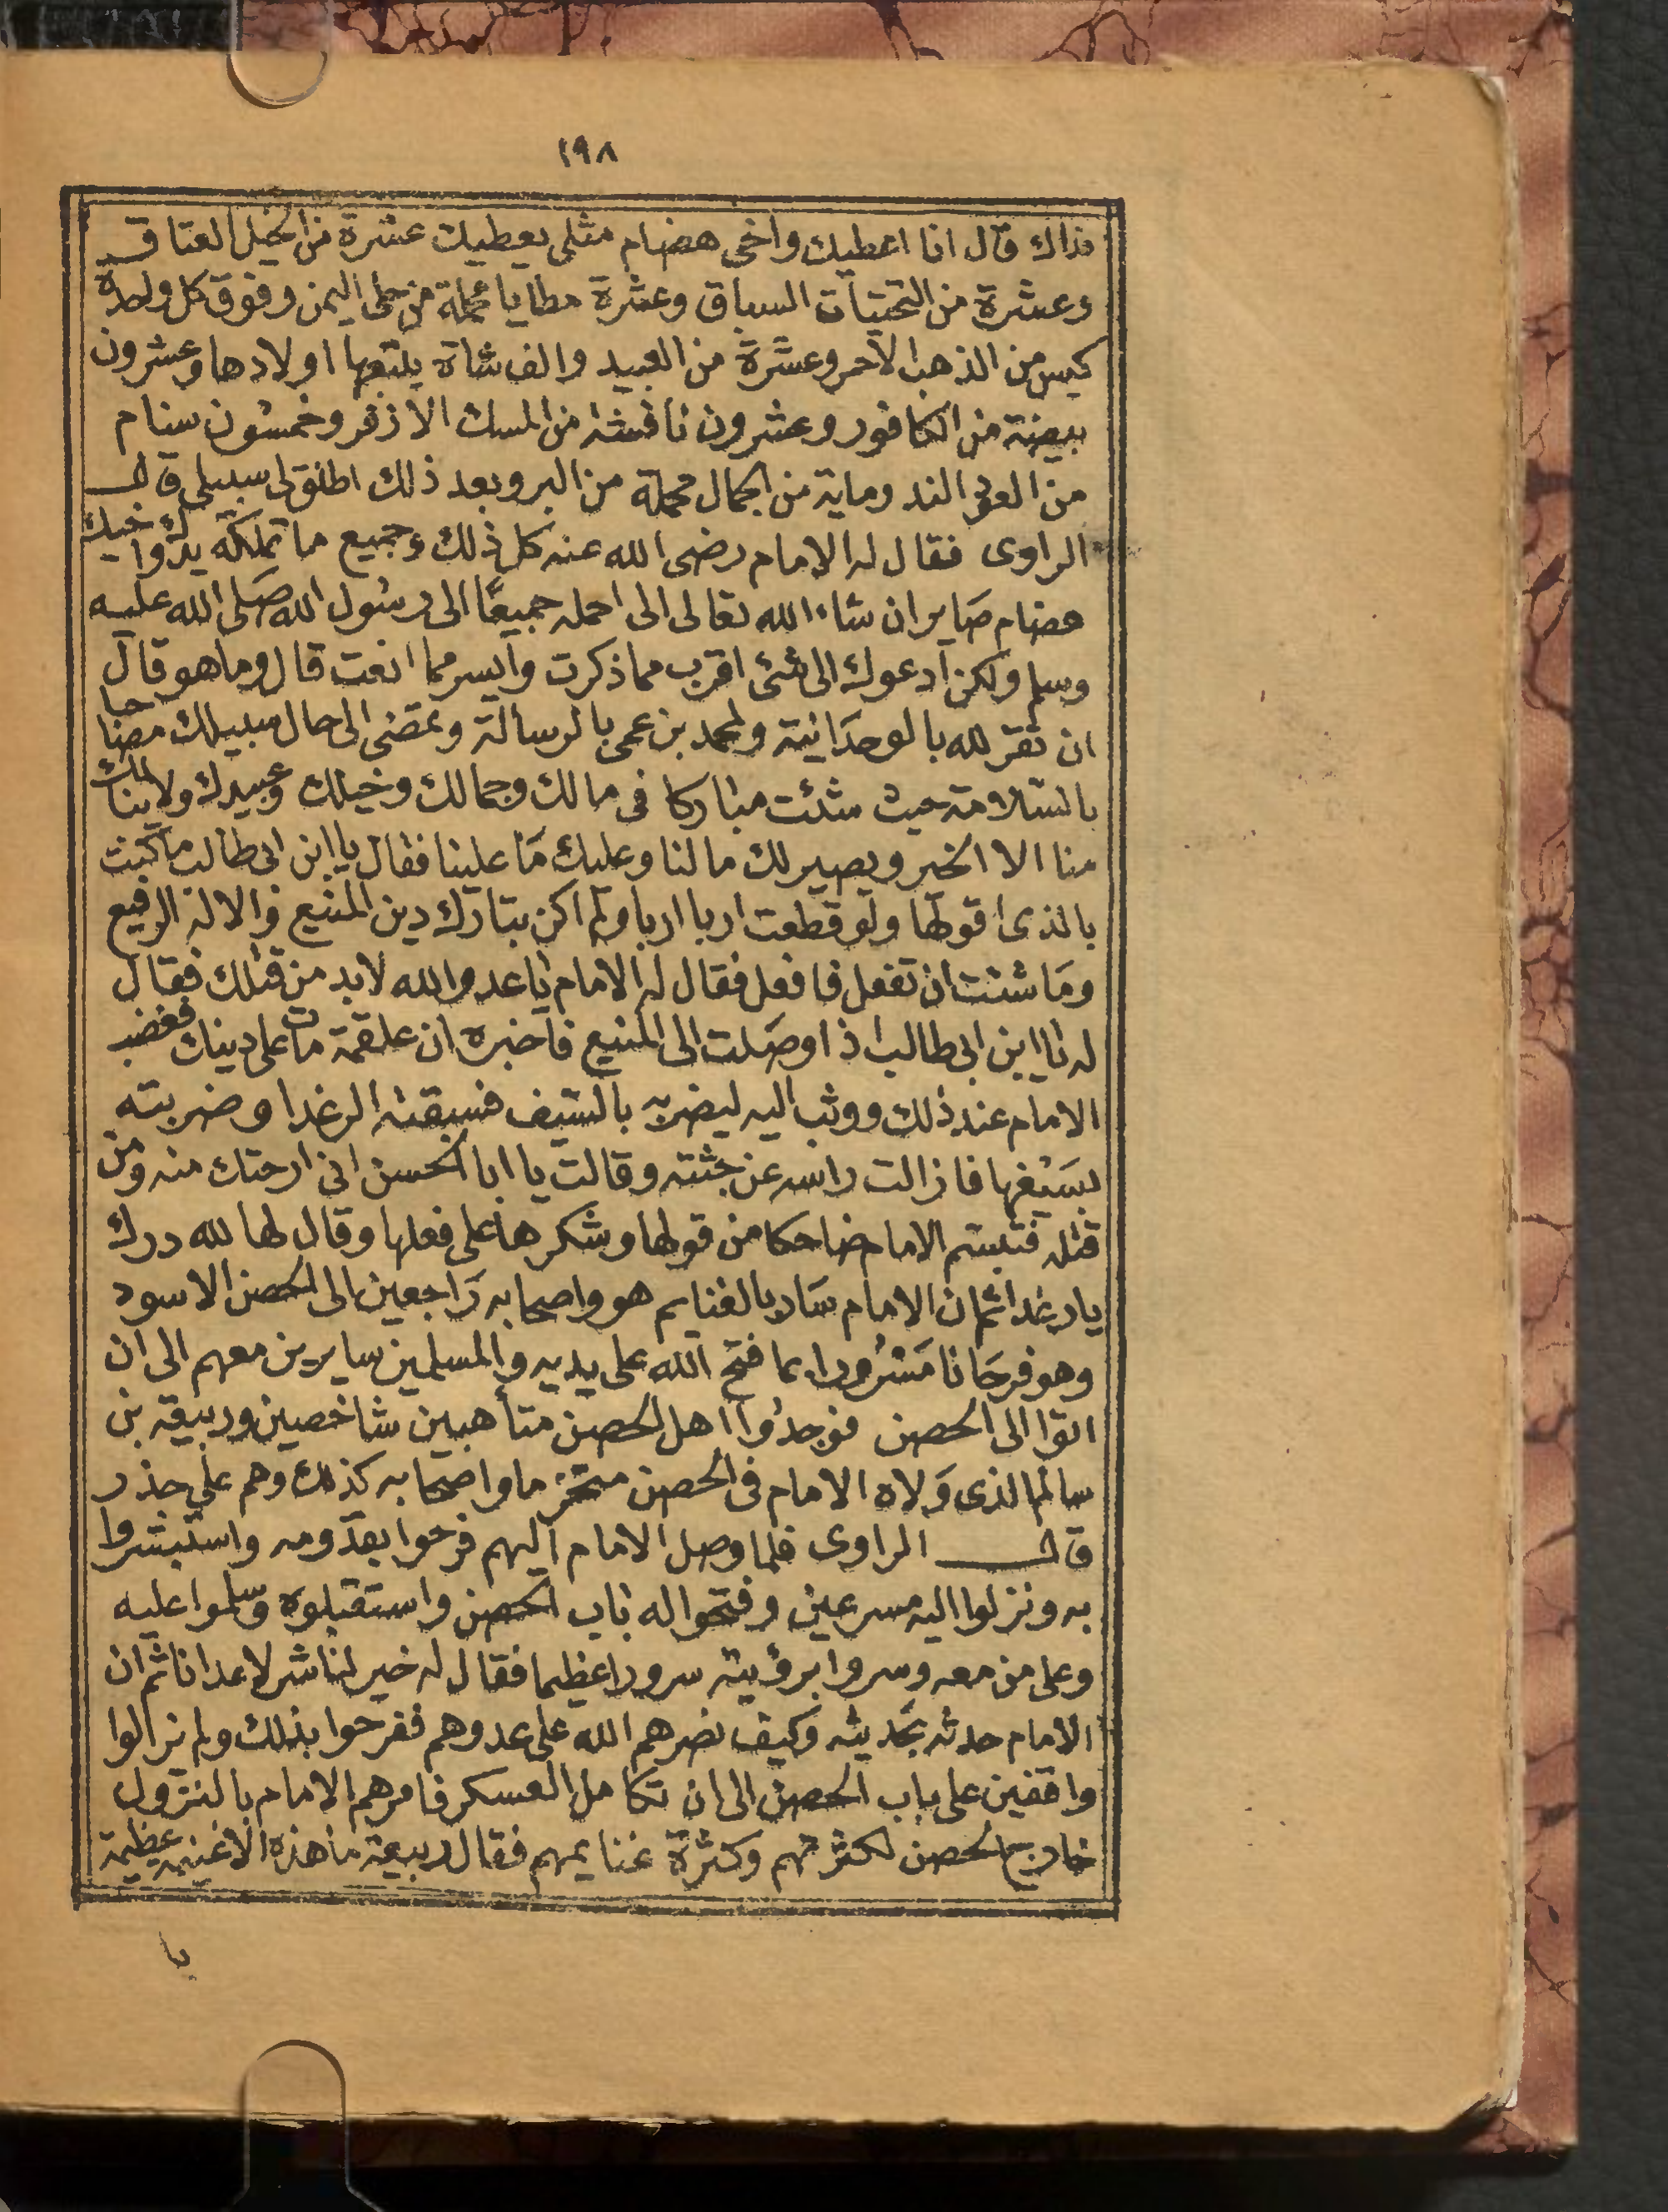 ١٩٨
فذاك قال انا اعطيك واخى هضام مثلى يعطيك عشرة من الخيل العتاق
وعشرة من التختيات السباق وعشرة مطايا محملة من حلى اليمن وفوق كل واحدة
كيس من الذهب الاحمر وعشرة من العبيد والف شاة يتبعها اولادها وعشرون
بيضة من الكافور وعشرون نافشة من المسك الازفر وخمسون سنام
من العود الند وماية من الجمال محملة من البر وبعد ذلك اطلق لى سبيلى قال
الراوى فقال له الامام رضى الله عنه كل ذلك وجميع ما تملكه يدك واخيك
هضام صاير ان شاء الله تعالى الى احمله جميعًا الى رسول الله صلى الله عليه
وسلم ولكن ادعوك الى شئ اقرب مما ذكرت وايسر مما انعت قال وما هو قال
ان تقر لله بالوحدانية ولمحمد بن عمى بالرسالة وتمضى الى حال سبيلك مصاحبا
بالسلامة حيث شئت مباركا فى مالك وجمالك وخيلك وعبيدك ولا ينالك
منا الا الخير ويصير لك مالنا وعليك ما علينا فقال يا ابن ابى طالب ما كنت
بالذى اقولها ولو قطعت اربا اربا ولم اكن بتارك دين المنيع والاله الرفيع
وما شئت ان تفعل فافعل فقال له الامام يا عدو الله لابد من قتلك فقال
له يا ابن ابى طالب اذا وصلت الى المنيع فاخبره ان علقمة مات على دينك فغضب
الامام عند ذلك ووثب اليه ليضربه بالسيف فسبقته الرغدا وضربته
بسيفها فازالت راسه عن جثته وقالت يا ابا الحسن انى ارحتك منه ومن
قتله فتبسم الامام ضاحكا من قولها وشكرها على فعلها وقال لها لله درك
يا رغدا ثم ان الامام سار بالغنايم هو واصحابه راجعين الى الحصن الاسود
وهو فرحانا مسرورا بما فتح الله على يديه والمسلمين سايرين معهم الى ان
اتوا الى الحصن فوجدوا اهل الحصن متأهبين شاخصين وربيعة بن
سالم الذى ولاه الامام فى الحصن متحزما واصحابه كذلك وهم على حذر
قال الراوى فلما وصل الامام اليهم فرحوا بقدومه واستبشروا
به ونزلوا اليه مسرعين وفتحوا له باب الحصن واستقبلوه وسلموا عليه
وعلى من معه وسروا برؤيته سرورا عظيما فقال له خير لنا شر لاعدانا ثم ان
الامام حدثه بحديثه وكيف نصرهم الله على عدوهم ففرحوا بذلك ولم يزالوا
واقفين على باب الحصن الى ان تكامل العسكر فامرهم الامام بالنزول
خارج الحصن لكثرتهم وكثرة غنايمهم فقال ربيعة ما هذه الا غنيمة عظيمة
يا